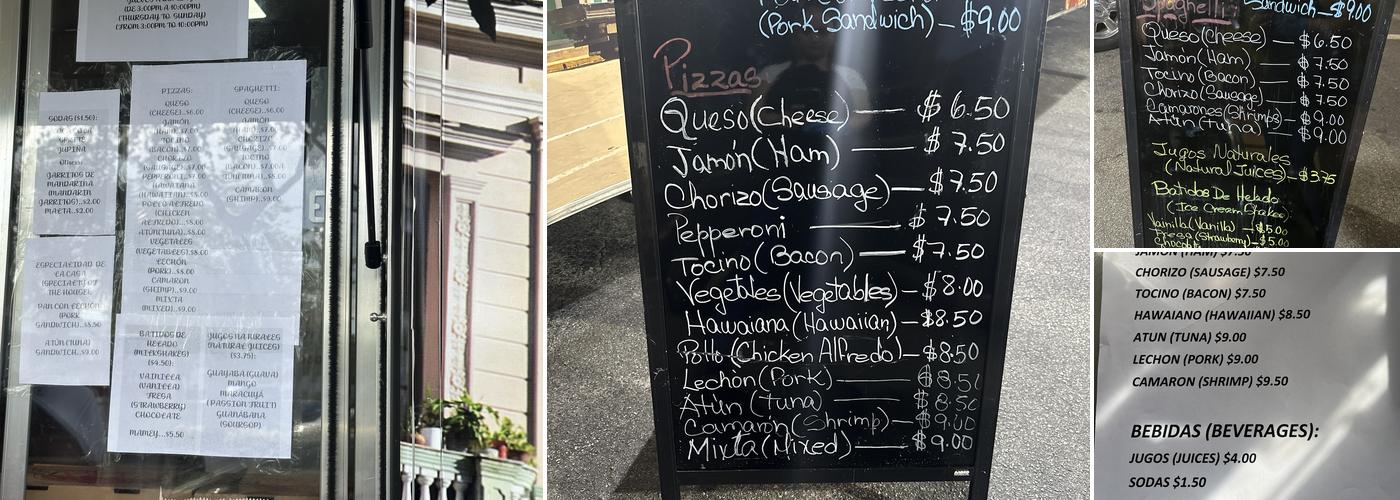 (DE 3:00PM A 10:00PM)
(THURSDAY TO SUNDAY)
(FROM 3:00PM TO 10:00PM)
SODAS ($1.50):
JUPINA
JARRITOS DE
MANDARINA
(MANDARIN
JARRITOS)..$2.00
MALTA..$2.00
ESPECIALIDAD DE
LA CASA
(SPECIALTY OF
THE HOUSE):
PAN CON LECHÓN
(PORK
SANDWICH)..$8.50
ATÚN (TUNA)
SANDWICH..$9.00
PIZZAS:
QUESO
(CHEESE)..$6.00
JAMÓN
CHORIZO
(SAUSAGE)..$7.00
PEPPERONI..$7.00
HAWAIANA
(HAWAIIAN)..$8.00
POLLO ALFREDO
(CHICKEN
ALFREDO)..$8.00
ATÚN(TUNA)..$8.00
VEGETALES
(VEGETABLES)..$8.00
LECHÓN
(PORK)..$8.00
CAMARON
(SHRIMP)..$9.00
MIXTA
(MIXED)..$9.00
SPAGHETTI:
QUESO
(CHEESE)..$6.00
JAMÓN
CHORIZO
(SAUSAGE)..$7.00
TOCINO
CAMARON
(SHRIMP)..$9.00
BATIDOS DE
HELADO
(MILKSHAKES)
($4.50):
VAINILLA
(VANILLA)
FRESA
(STRAWBERRY)
CHOCOLATE
MAMEY...$5.50
JUGOS NATURALES
(NATURAL JUICES)
($3.75):
GUAYABA (GUAVA)
MANGO
MARACUYÁ
(PASSION FRUIT)
GUANÁBANA
(SOURSOP)
(Pork Sandwich) - $9.00
Pizzas
Queso(Cheese) — $ 6.50
Jamón(Ham) — $ 7.50
Chorizo(Sausage) — $ 7.50
Pepperoni — $ 7.50
Tocino(Bacon) — $7.50
Vegetales(Vegetables) — $8.00
Hawaiana(Hawaiian) — $8.50
Pollo(Chicken Alfredo) — $8.50
Lechòn(Pork) — $8.50
Atún(tuna) — $8.50
Camarón(Shrimp) — $9.00
Mixta(Mixed) — $9.00
Sandwich — $9.00
Spaghetti:
Queso(Cheese) — $6.50
Jamón(Ham) — $ 7.50
Tocino(Bacon) — $ 7.50
Chorizo(Sausage) — $ 7.50
Camarones(Shrimps) — $9.00
Atún(tuna) — $9.00
Jugos Naturales
(Natural Juices) — $3.75
Batidos De Helado
(Ice Cream Shakes):
Vainilla(Vanilla) — $5.00
Fresa(Strawberry) — $5.00
JAMON (HAM) $7.50
CHORIZO (SAUSAGE) $7.50
TOCINO (BACON) $7.50
HAWAIANO (HAWAIIAN) $8.50
ATUN (TUNA) $9.00
LECHON (PORK) $9.00
CAMARON (SHRIMP) $9.50
BEBIDAS (BEVERAGES):
JUGOS (JUICES) $4.00
SODAS $1.50